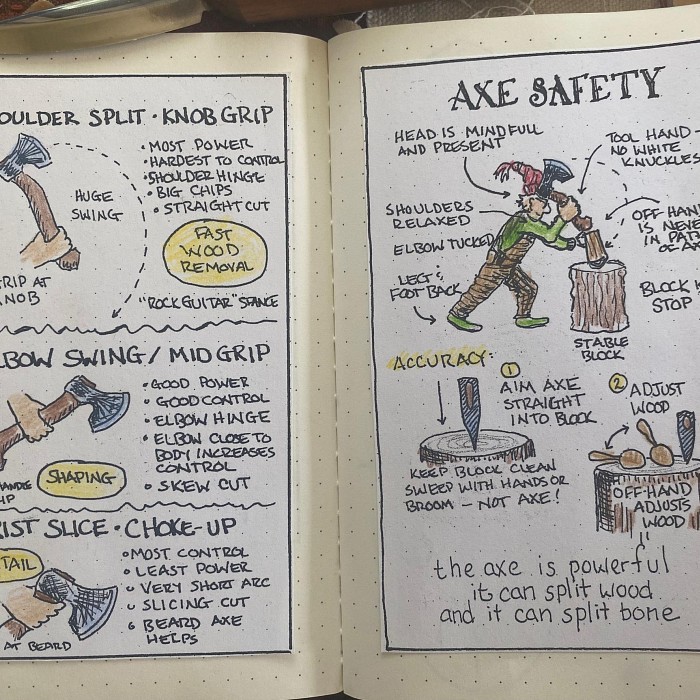 OULDER SPLIT · KNOB GRIP
• MOST POWER
• HARDEST TO CONTROL
• SHOULDER HINGE
• BIG CHIPS
• STRAIGHT CUT
HUGE
SWING
FAST
WOOD
REMOVAL
GRIP AT
KNOB
"ROCK GUITAR" STANCE
LBOW SWING / MID GRIP
• GOOD POWER
• GOOD CONTROL
• ELBOW HINGE
• ELBOW CLOSE TO
BODY INCREASES
CONTROL
• SKEW CUT
SHAPING
HANDLE
IP
RIST SLICE · CHOKE-UP
TAIL
• MOST CONTROL
• LEAST POWER
• VERY SHORT ARC
• SLICING CUT
• BEARD AXE
HELPS
AT BEARD
AXE SAFETY
HEAD IS MINDFULL
AND PRESENT
TOOL HAND
NO WHITE
KNUCKLES
SHOULDERS
RELAXED
ELBOW TUCKED
LEG &
FOOT BACK
OFF-HAN
IS NEVE
IN PAT
OF A
BLOCK I
STOP
STABLE
BLOCK
ACCURACY:
① AIM AXE
STRAIGHT
INTO BLOCK
② ADJUST
WOOD
KEEP BLOCK CLEAN
SWEEP WITH HANDS OR
BROOM – NOT AXE!
OFF-HAND
ADJUSTS
WOOD
the axe is powerful
it can split wood
and it can split bone